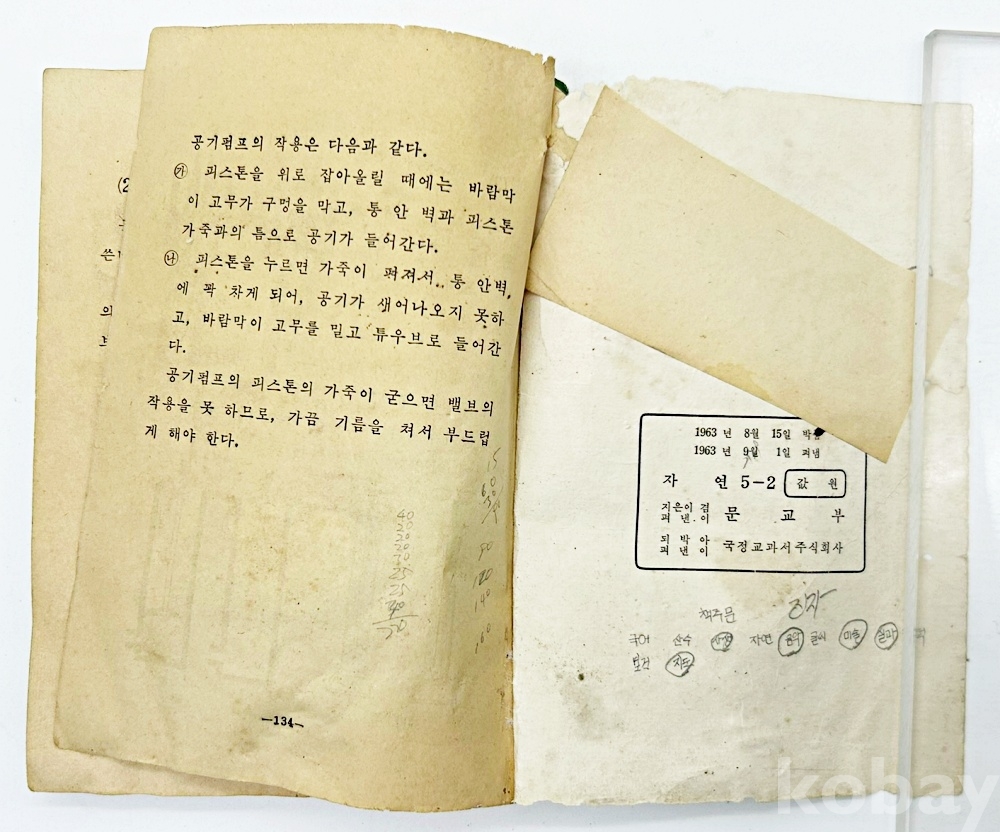 공기펌프의 작용은 다음과 같다.
㉮ 피스톤을 위로 잡아올릴 때에는 바람막
이 고무가 구멍을 막고, 통 안 벽과 피스톤
가죽과의 틈으로 공기가 들어간다.
㉯ 피스톤을 누르면 가죽이 펴져서, 통 안벽,
에 꽉 차게 되어, 공기가 새어나오지 못하
고, 바람막이 고무를 밀고 튜우브로 들어간
다.
공기펌프의 피스톤의 가죽이 굳으면 밸브의
작용을 못 하므로, 가끔 기름을 쳐서 부드럽
게 해야 한다.
—134—
(2
쓴
의
1963 년 8월 15일 박음
1963 년 9월 1일 펴냄
자 연 5-2 값 원
지은이 겸
펴 낸 이 문 교 부
되 박 아
펴 낸 이 국정교과서주식회사
책주문
국어 산수 자연 음악 글씨 미술 실과
보건 지도
15
60
40
20
20
20
25
25
80
120
140
160
kobay